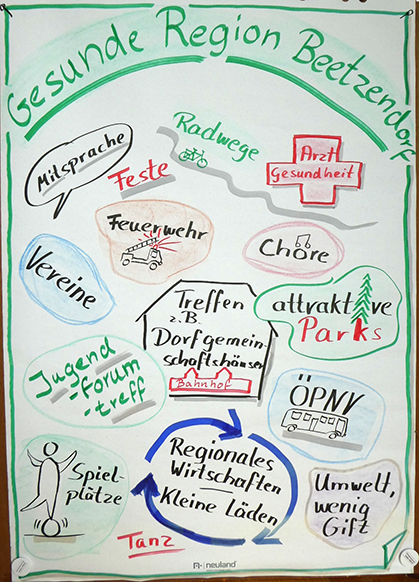 Gesunde Region Beetzendorf
Mitsprache
Feste
Radwege
Arzt
Gesundheit
Feuerwehr
Chöre
Vereine
Treffen
z.B.
Dorfgemein-
schaftshäuser
Bahnhof
attraktive
Parks
Jugend
-forum
-treff
ÖPNV
Spiel-
plätze
Regionales
Wirtschaften
Kleine Läden
Umwelt,
wenig
Gift
Tanz
neuland